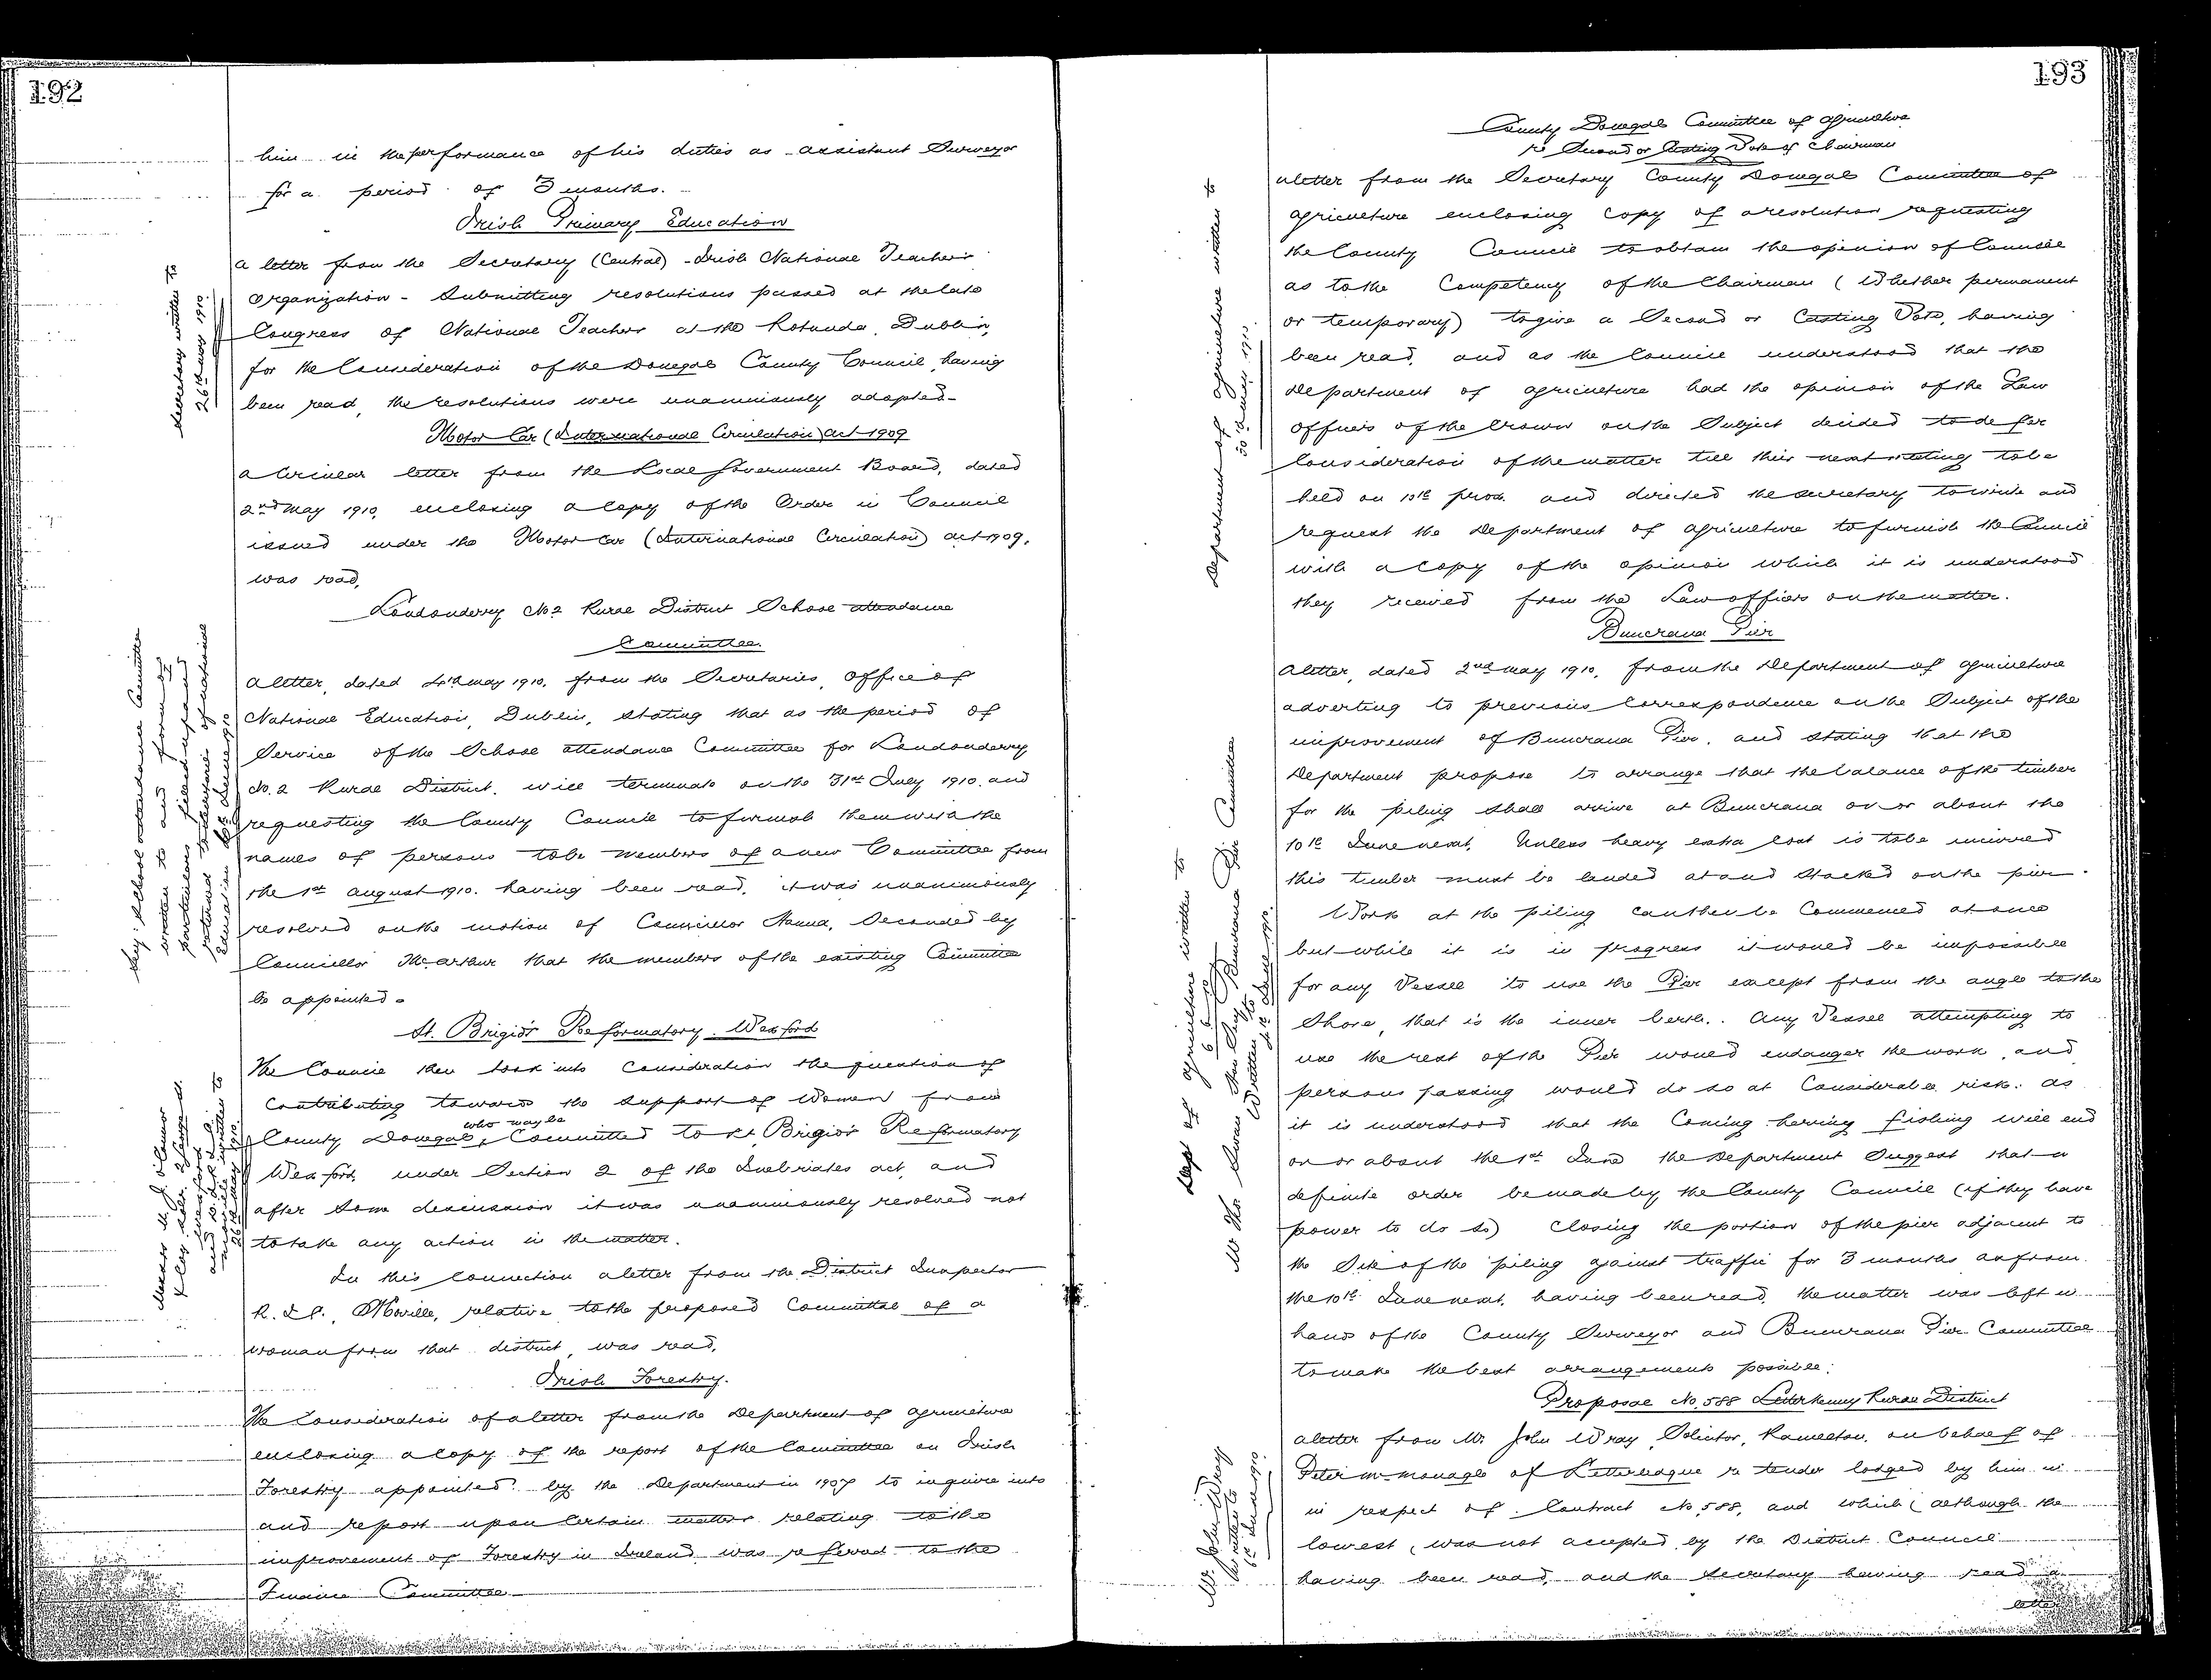 192
him in the performance of his duties as assistant Surveyor
for a period of 3 months.
Irish Primary Education
Secretary written to
26th May 1910.
A letter from the Secretary (Central) Irish National Teachers
Organization - Submitting resolutions passed at the late
Congress of National Teachers at the Rotunda, Dublin,
for the Consideration of the Donegal County Council, having
been read, the resolutions were unanimously adopted -
Motor Car (International Circulation) Act 1909
A Circular letter from the Local Government Board, dated
2nd May 1910, enclosing a Copy of the Order in Council
issued under the Motor Car (International Circulation) Act 1909,
was read.
Londonderry No 2 Rural District School Attendance
Committee.
Secy. School Attendance Committee
written to and form
particulars filled up and
returned to Secretaries of National
Education June 1910
A letter, dated 4th May 1910, from the Secretaries, Office of
National Education, Dublin, stating that as the period of
Service of the School Attendance Committee for Londonderry
No. 2 Rural District, will terminate on the 31st July 1910, and
requesting the County Council to furnish them with the
names of persons to be members of a new Committee from
the 1st August 1910. having been read, it was unanimously
resolved on the motion of Councillor Hanna, Seconded by
Councillor McArthur that the members of the existing Committee
be appointed -
St. Brigid's Reformatory. Wexford
and
written to
The Council then took into Consideration the question of
Contributing towards the support of Women from
County Donegal, who may be Committed to St. Brigid's Reformatory
Wexford, under Section 2 of the Inebriates Act, and
after some discussion it was unanimously resolved not
to take any action in the matter.
In this Connection a letter from the District Inspector
R.I.C., Moville, relative to the proposed Committal of a
woman from that district, was read.
Irish Forestry.
The Consideration of a letter from the Department of Agriculture
enclosing a copy of the report of the Committee on Irish
Forestry appointed by the Department in 1907 to inquire into
and report upon Certain matters relating to the
improvement of Forestry in Ireland was referred to the
Finance Committee
193
County Donegal Committee of Agriculture
re Second or Casting Vote of Chairman
Department of Agriculture written to
30th May 1910.
A letter from the Secretary County Donegal Committee of
Agriculture enclosing Copy of a resolution requesting
the County Council to obtain the opinion of Counsel
as to the Competency of the Chairman (Whether permanent
or temporary) to give a Second or Casting Vote, having
been read, and as the Council understood that the
Department of Agriculture had the opinion of the Law
Officers of the Crown on the Subject decided to defer
Consideration of the matter till their next meeting to be
held on 10th prox. and directed the Secretary to write and
request the Department of Agriculture to furnish the Council
with a Copy of the opinion which it is understood
they received from the Law officers on the matter.
Buncrana Pier
Dept of Agriculture written to
6.6.10
Hon Secy Buncrana Pier Committee
Written to
June 1910.
A letter, dated 2nd May 1910, from the Department of Agriculture
adverting to previous Correspondence on the Subject of the
improvement of Buncrana Pier, and stating that the
Department propose to arrange that the balance of the timber
for the piling shall arrive at Buncrana on or about the
10th June next. Unless heavy extra Cost is to be incurred
this timber must be landed at and stacked on the pier.
Work at the piling can then be Commenced at once
but while it is in progress it would be impossible
for any Vessel to use the Pier except from the angle to the
Shore, that is the inner berth. Any Vessel attempting to
use the rest of the Pier would endanger the work, and
persons passing would do so at Considerable risk. As
it is understood that the Coming herring fishing will end
on or about the 1st June the Department Suggest that a
definite order be made by the County Council (if they have
power to do so) Closing the portion of the pier adjacent to
the Site of the piling against traffic for 3 months as from
the 10th June next. having been read, the matter was left in
hands of the County Surveyor and Buncrana Pier Committee
to make the best arrangements possible.
Proposal No. 588 Letterkenny Rural District
Mr. John Wray
written to
June 1910.
A letter from Mr John Wray, Solicitor, Ramelton, on behalf of
Peter McMonagle of Letterleague re tender lodged by him in
in respect of Contract No. 588, and which (although the
lowest, was not accepted by the District Council
having been read, and the Secretary having read a
letter